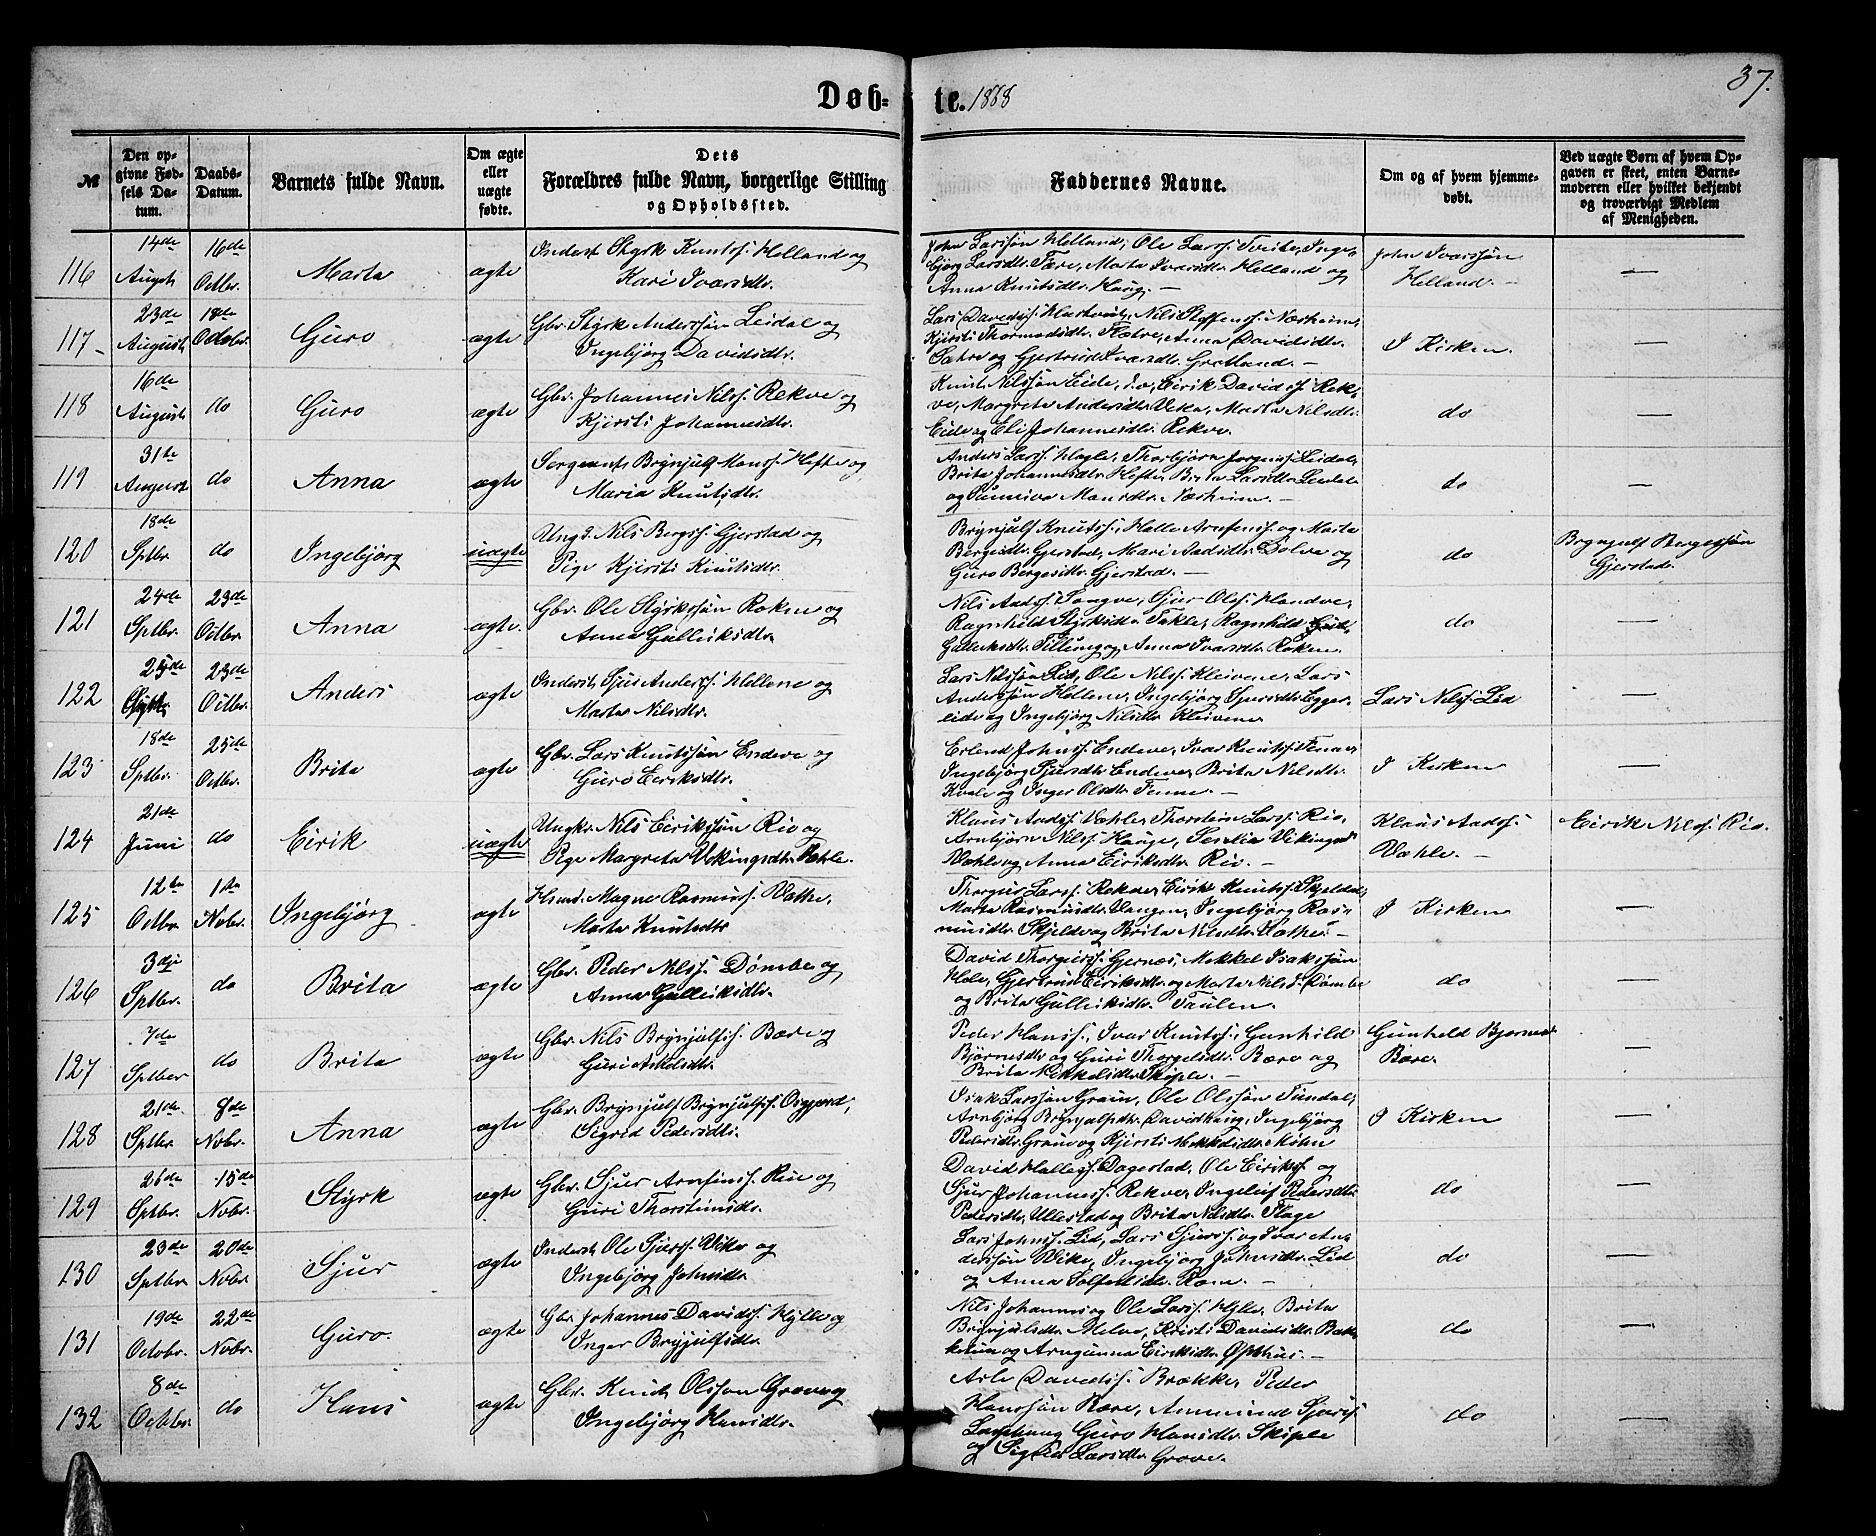 Døb=
te. 1868
37.
№
Den op-
givne Fød-
sels Da-
tum.
Daabs-
Datum.
Barnets fulde Navn.
Om ægte
eller
uægte
fødte.
Dets
Forældres fulde Navn, borgerlige Stilling
og Opholdssted.
Faddernes Navne.
Om og af hvem hjemme-
døbt.
Ved uægte Børn af hvem Op-
gaven er skeet, enten Barne-
moderen eller hvilket bekjendt
og troværdigt Medlem
af Menigheden.
116
14de
August
16de
Octbr.
Marta
ægte
Inderst Styrk Knuts. Helland og
Kari Ivarsdtr.
John Larssøn Helland, Ole Larss. Tveite, Inge-
bjørg Larsdtr. Tøre, Marta Ivarsdtr. Helland og
Anna Knutsdtr. Haug. —
John Ivarssøn
Helland. —
—
117
23de
August
18de
Octobr.
Guro
ægte
Gbr. Styrk Anderssøn Leidal og
Ingebjørg Davidsdtr.
Lars Davids. Hartveit, Nils Steffenss. Nærheim,
Kjersti Thormodsdtr. Sætre, Anna Davidsdtr.
Sætre og Gjertrud Ivarsdtr. Grotland. —
I Kirken.
—
118
16de
August
do
Guro
ægte
Gbr. Johannes Nilss. Rekve og
Kjersti Johannesdtr.
Knut Nilssøn Eide, do, Eirik Davidss. Rek-
ve, Margreta Andersdtr. Veka, Marta Nilsdtr.
Eide og Eli Johannesdtr. Rekve.
do
—
119
31te
August
do
Anna
ægte
Sergeant Brynjulf Monss. Hefte og
Maria Knutsdtr.
Anders Larss. Hagle, Thorbjørn Jørgenss. Leidal,
Brita Johannesdtr. Hefte, Brita Larsdtr. Leidal
og Sunniva Monsdtr. Nærheim. —
do
—
120
18de
Sptbr.
do
Ingebjørg
uægte
Ungk. Nils Bergss. Gjerstad og
Pige Kjersti Knutsdtr.
Brynjulf Knutss., Helle Arnfinss. og Marta
Bergesdtr. Gjerstad, Mari Aadsdtr. Dolve og
Guro Bergesdtr. Gjerstad. —
do
Brynjulf Bergessøn
Gjerstad.
121
24de
Sptbr.
23de
Octbr.
Anna
ægte.
Gbr. Ole Styrkssøn Rokne og
Anna Gulleiksdtr.
Nils Aadss. Songve, Sjur Olss. Handve,
Ragnhild Styrksdtr. Takle, Ragnhild
Gulleiksdtr. Tillung og Anna Ivarsdtr. Rokne.
do
—
122
25de
Septbr.
23de
Octbr.
Anders
ægte
Inderst Sjur Anderss. Hellene og
Marta Nilsdtr.
Lars Nilssøn Lid, Ole Nilss. Kleivene, Lars
Anderssøn Hellene, Ingebjørg Sjursdtr. Egger-
eide og Ingebjørg Nilsdtr. Kleivene
Lars Nilss. Lid
—
123
18de
Sptbr.
25de
Octbr.
Brita
ægte
Gbr. Lars Knutssøn Endeve og
Guro Eiriksdtr.
Erlend Johnss. Endeve, Ivar Knutss. Finne,
Ingebjørg Sjursdtr. Endeve, Brita Nilsdtr.
Kvale og Inger Olsdtr. Finne. —
I Kirken
—
124
21de
Juni
do
Eirik
uægte
Ungkr. Nils Eirikssøn Rio og
Pige Margreta Vikingsdtr. Væhle.
Klaus Aadss. Væhle, Thorstein Larss. Rio,
Arnbjørn Nilss. Hauge, Sesilia Vikingsd.
Væhle og Anna Eiriksdtr. Rio. —
Klaus Aadss.
Væhle. —
Eirik Nilss. Rio.
125
12te
Octbr.
1ste
Novbr.
Ingebjørg
ægte
Husmd. Magne Rasmuss. Væthe,
Marta Knutsdtr
Thorgier Larss. Rekve, Eirik Knutss. Skjeldal,
Marta Rasmusdtr. Vangen, Ingebjørg Ras-
musdtr. Skjelde og Brita Nilsdtr. Væthe. —
I Kirken
—
126
3die
Sptbr.
do
Brita
ægte
Gbr. Peder Nilss. Dømbe og
Anna Gulleiksdtr.
David Thorgierss. Gjernes, Mikkel Isakssøn
Hole, Gjertrud Eiriksdtr. og Marta Nilsd. Dømbe
og Brita Gulleiksdtr. Saulen.
do
—
127
7de
Sptber
do
Brita
ægte
Gbr. Nils Brynjulfss. Bøe og
Guri Askelsdtr.
Peder Hanss., Ivar Knutss., Gunhild
Bjørnesdtr. og Guri Thorgilsdtr. Børe og
Brita Mikkelsdtr. Skiple. —
Gunhild Bjørnesd.
Børe.
—
128
21de
Sptbr.
8de
Novbr.
Anna
ægte
Gbr. Brynjulf Brynjulfss. Onggard,
Sigrid Pedersdtr.
Isak Larssøn Graue, Ole Olssøn Tundal,
Arnbjørg Brynjulfsdtr. Davidhaug, Ingebjørg
Pedersdtr. Graue og Kjersti Mikkelsdtr. Miltn
I Kirken
—
129
26de
Sptbr.
15de
Novbr.
Styrk
ægte
Gbr. Sjur Arnfinss. Riu og
Guri Thorsteinsdtr.
David Hallegss. Dagestad, Ole Eirikss. og
Sjur Johanness. Rekve, Ingeleif Pedersdtr.
Pedersdtr. Ullestad og Brita Nilsdtr. Flage
do
—
130
23de
Sptbr.
20de
Novbr.
Sjur
ægte
Inderst Ole Sjurss. Vike og
Ingebjørg Johnsdtr.
Lars Johnss. Lid, Lars Sjurss. og Ivar An-
derssøn Vike, Ingebjørg Johnsdtr. Lid
og Anna Solfestsdtr. Rone. —
do
—
131
19de
Octobr.
22de
Novbr.
Guro.
ægte
Gbr. Johannes Davidss. Hylle og
Inger Brynjulfsdtr.
Nils Johannes. og Ole Larss. Hylle, Brita
Brynjulsdtr. Melve, Kristi Davidsdtr. Bak-
ketun og Arngunna Eiriksdtr. Opthus. —
do
—
132
8de
Octbr.
do
Hans
ægte
Gbr. Knut Olsson Grove og
Ingebjørg Hansdtr.
Arle Davidss. Brække, Peder
Hanssøn Børe, Anmund Sjurss.
Lasehaug Guro Hansdtr. Skiple
og Sigrid Larsdtr. Grove.
do
—